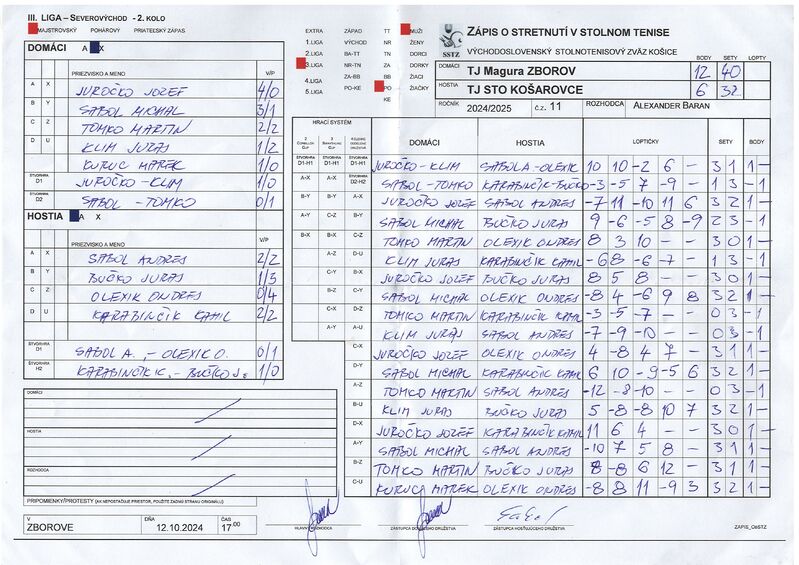 III. LIGA – SEVEROVÝCHOD - 2. KOLO
MAJSTROVSKÝ POHÁROVÝ PRIATEĽSKÝ ZÁPAS
EXTRA ZÁPAD TT MUŽI
1.LIGA VÝCHOD NR ŽENY
2.LIGA BA-TT TN DORKY
3.LIGA NR-TN ZA DORKY
4.LIGA ZA-BB BB ŽIACI
5.LIGA PO-KE PO ŽIAČKY
KE
SSTZ
ZÁPIS O STRETNUTÍ V STOLNOM TENISE
VÝCHODOSLOVENSKÝ STOLNOTENISOVÝ ZVÄZ KOŠICE
BODY SETY LOPTY
DOMÁCI TJ Magura ZBOROV 12 40
HOSTIA TJ STO KOŠAROVCE 6 32
ROČNÍK 2024/2025 č.z. 11 ROZHODCA ALEXANDER BARAN
DOMÁCI A X
PRIEZVISKO A MENO V/P
A X JUROČKO JOZEF 4/0
B Y SABOL MICHAL 3/1
C Z TOMKO MARTIN 2/2
D U KLIM JURAJ 1/2
KURUC MAREK 1/0
ŠTVORHRA D1 JUROČKO-KLIM 1/0
ŠTVORHRA D2 SABOL-TOMKO 0/1
HOSTIA A X
PRIEZVISKO A MENO V/P
A X SABOL ANDREJ 2/2
B Y BUČKO JURAJ 1/3
C Z OLEXIK ONDREJ 0/4
D U KARABINČÍK KAMIL 2/2
ŠTVORHRA D1 SABOL A. - OLEXIK O. 0/1
ŠTVORHRA H2 KARABINČIK K. - BUČKO J. 1/0
DOMÁCI
HOSTIA
ROZHODCA
PRIPOMIENKY/PROTESTY (AK NEPOSTAČUJE PRIESTOR, POUŽITE ZADNÚ STRANU ORIGINÁLU)
V ZBOROVE DŇA 12.10.2024 ČAS 17.00
HRACÍ SYSTÉM
DOMÁCI HOSTIA LOPTIČKY SETY BODY
JUROČKO-KLIM SABOL A-OLEXIK 10 10 -2 6 - 3 1 1 -
SABOL-TOMKO KARABINČIK-BUČKO -3 -5 7 -9 - 1 3 - 1
JUROČKO JOZEF SABOL ANDREJ -7 11 -10 11 6 3 2 1 -
SABOL MICHAL BUČKO JURAJ 9 -6 -5 8 -9 2 3 - 1
TOMKO MARTIN OLEXIK ONDREJ 8 3 10 - - 3 0 1 -
KLIM JURAJ KARABINČÍK KAMIL -6 8 -6 -7 - 1 3 - 1
JUROČKO JOZEF BUČKO JURAJ 8 5 8 - - 3 0 1 -
SABOL MICHAL OLEXIK ONDREJ -8 4 -6 9 8 3 2 1 -
TOMKO MARTIN KARABINČÍK KAMIL -3 -5 -7 - - 0 3 - 1
KLIM JURAJ SABOL ANDREJ -7 -9 -10 - - 0 3 - 1
JUROČKO JOZEF OLEXIK ONDREJ 4 -8 4 7 - 3 1 1 -
SABOL MICHAL KARABINČÍK KAMIL 6 10 -9 -5 6 3 2 1 -
TOMKO MARTIN SABOL ANDREJ -12 -8 -10 - - 0 3 - 1
KLIM JURAJ BUČKO JURAJ 5 -8 -8 10 7 3 2 1 -
JUROČKO JOZEF KARABINČIK KAMIL 11 6 4 - - 3 0 1 -
SABOL MICHAL SABOL ANDREJ -10 7 5 8 - 3 1 1 -
TOMKO MARTIN BUČKO JURAJ 8 -8 6 12 - 3 1 1 -
KURUC MAREK OLEXIK ONDREJ -8 8 11 -9 3 3 2 1 -
HLAVNÝ ROZHODCA ZÁSTUPCA DOMÁCEHO DRUŽSTVA ZÁSTUPCA HOSŤUJÚCEHO DRUŽSTVA
ZÁPIS_OSSTZ